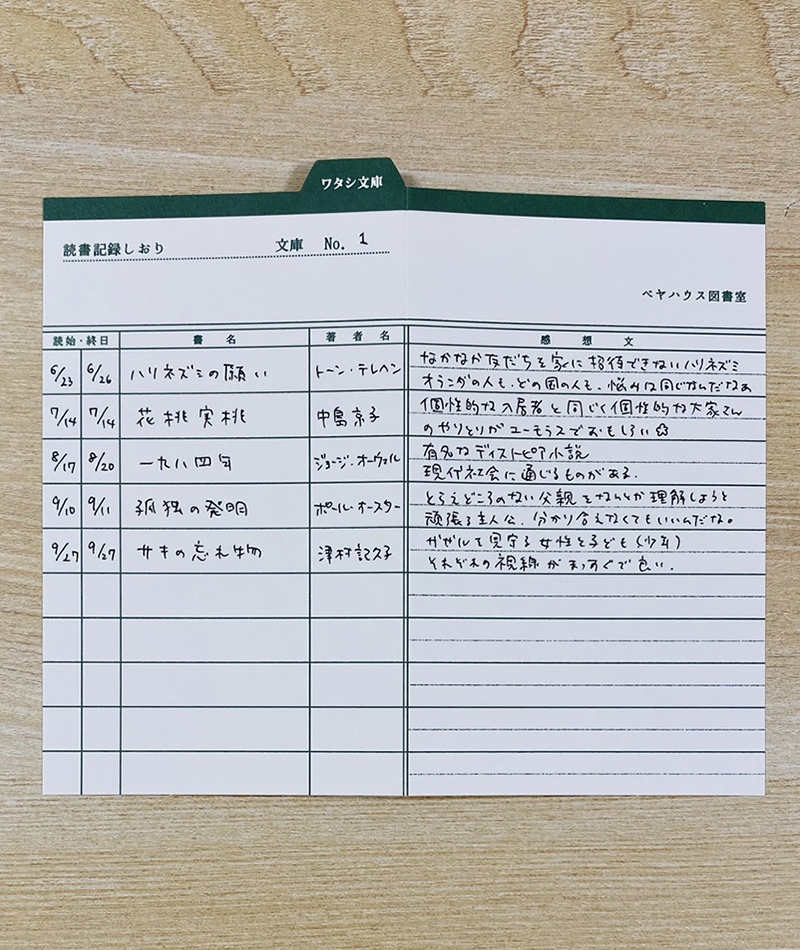 ワタシ文庫
読書記録しおり 文庫 No. 1
ペヤハウス図書室
読始・終日 書名 著者名 感想文
6/23 6/26 ハリネズミの願い トーン・テレヘン なかなか友だちを家に招待できないハリネズミ
オランダの人も、どの国の人も、悩みは同じなんだなあ
7/14 7/14 花桃実桃 中島京子 個性的な入居者と同じく個性的な大家さん
のやりとりがユーモラスでおもしろい☆
8/17 8/20 一九八四年 ジョージ・オーウェル 有名なディストピア小説
現代社会に通じるものがある.
9/10 9/11 孤独の発明 ポール・オースター とらえどころのない父親をなんとか理解しようと
頑張る主人公。分かり合えなくてもいいんだな。
9/27 9/27 サキの忘れ物 津村記久子 ガゼルを見守る女性と子ども(少年)
それぞれの視線がまっすぐで良い.